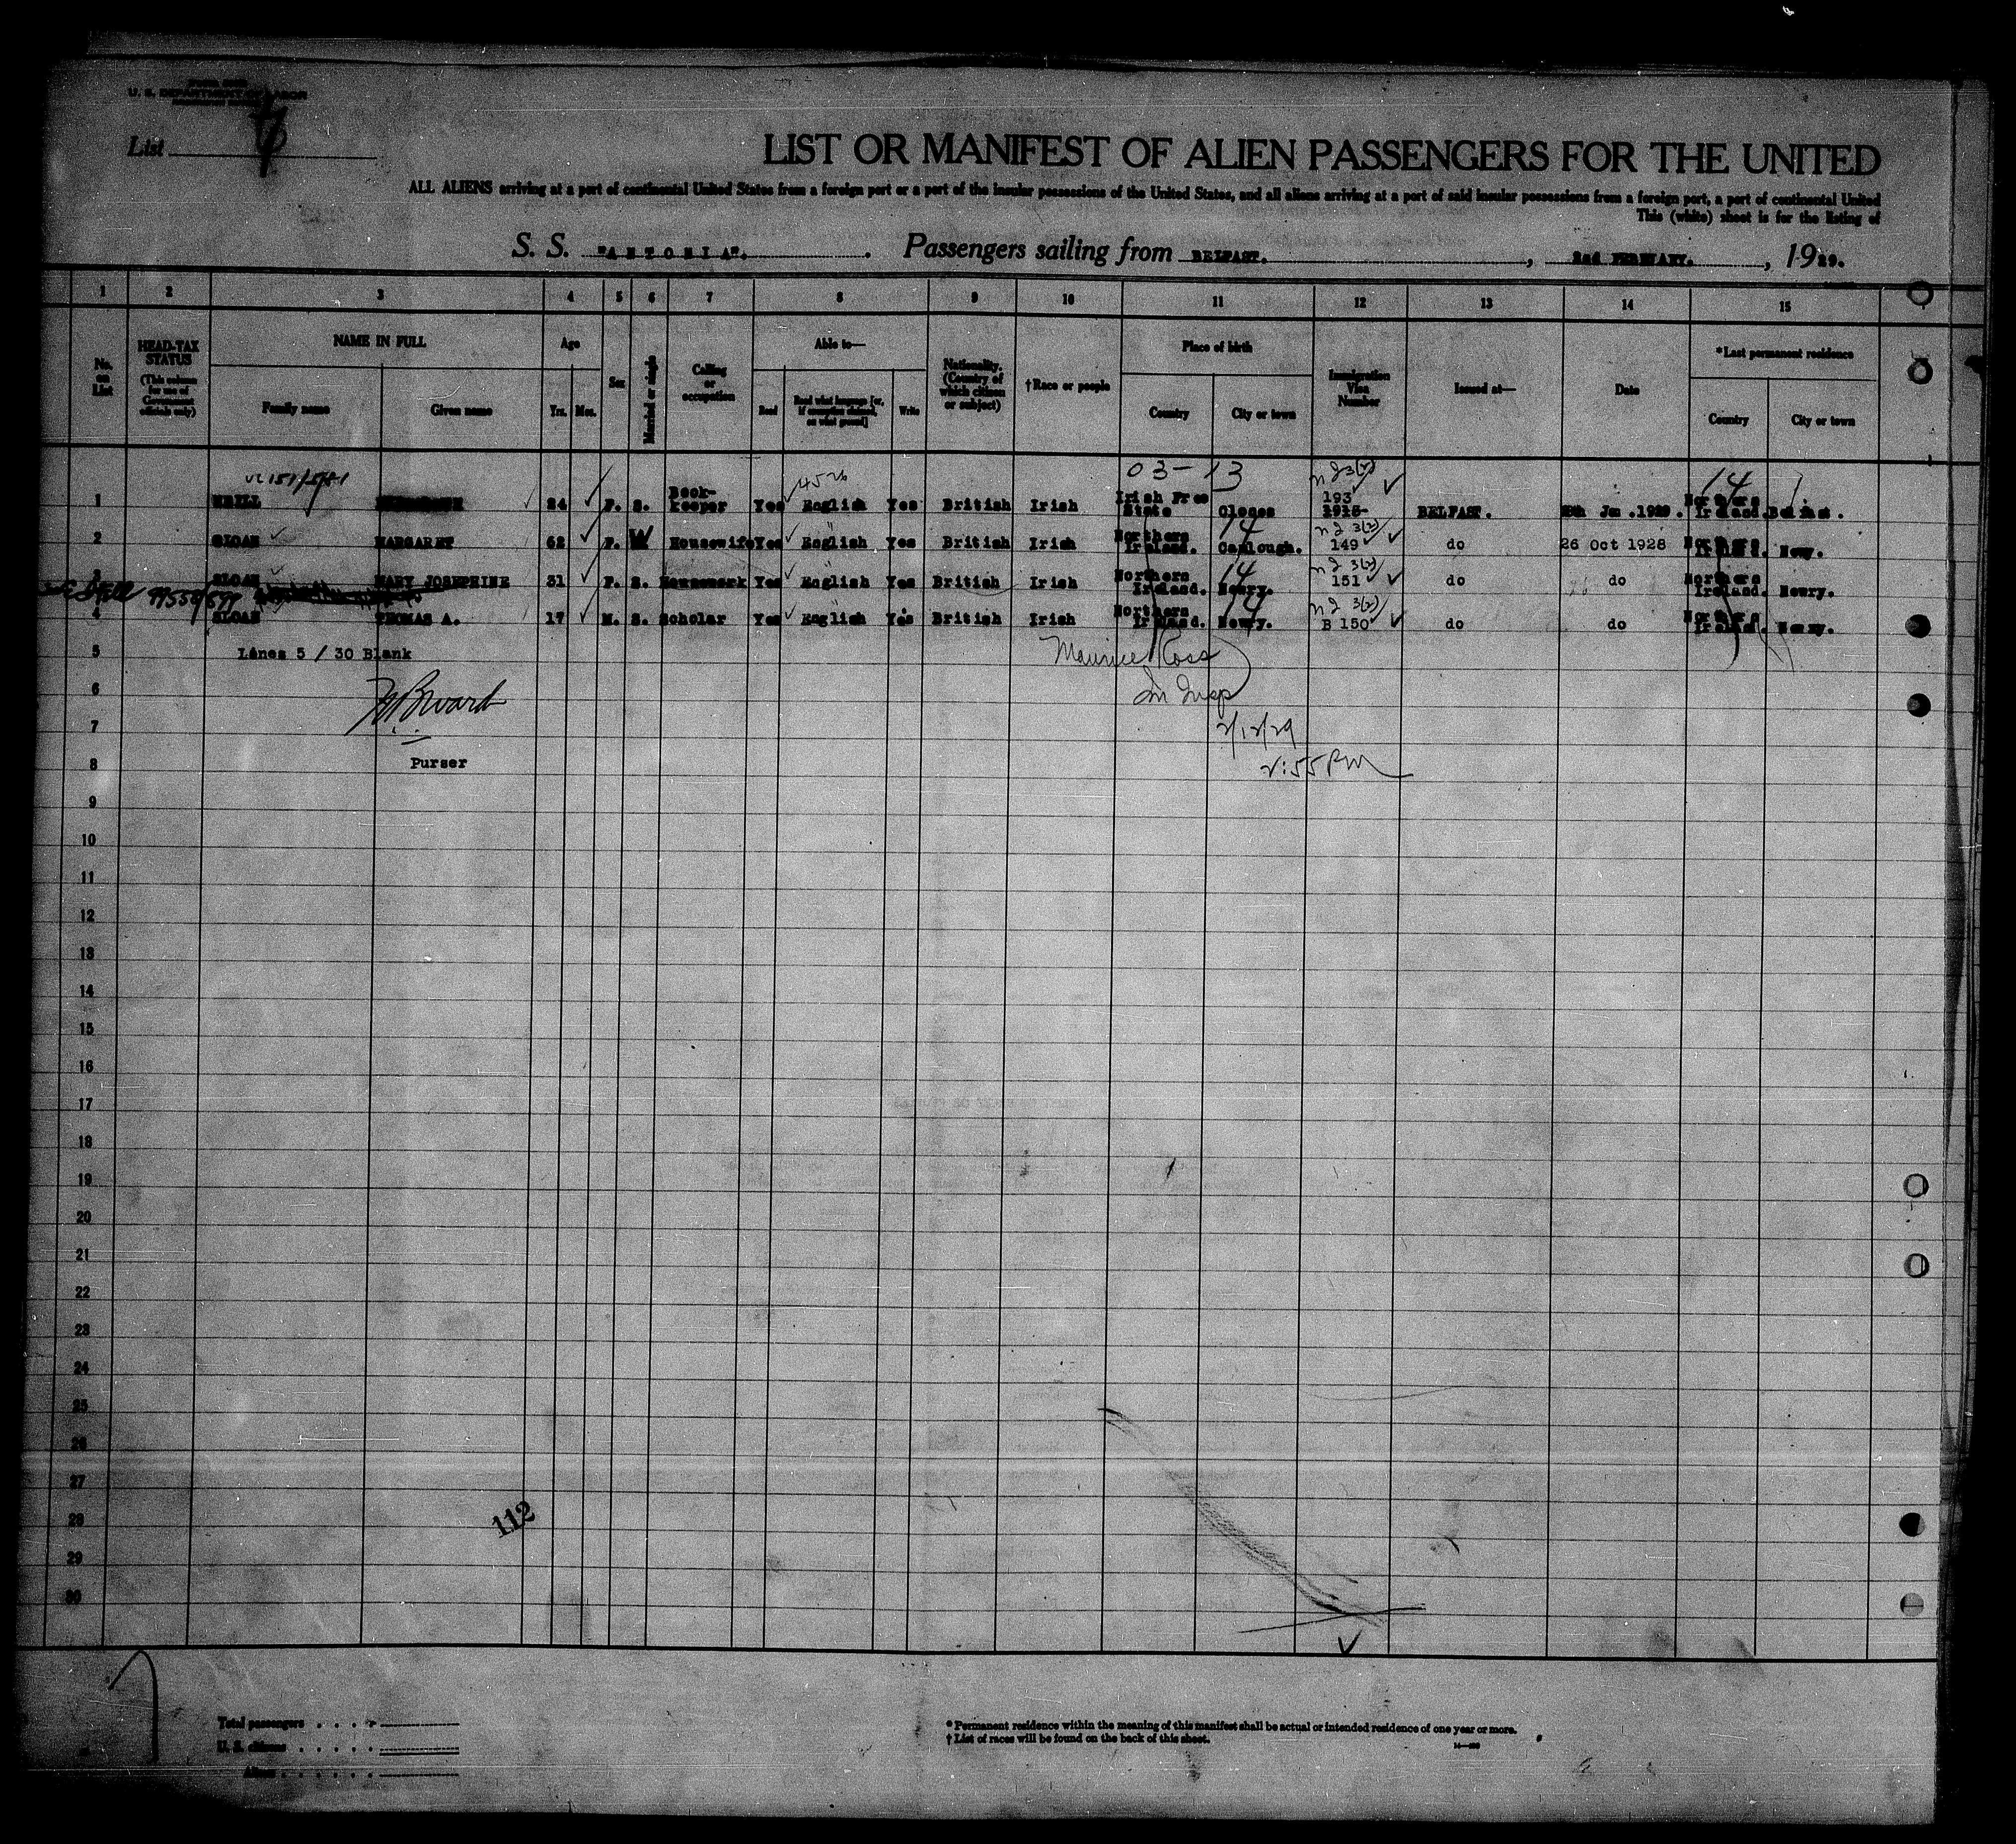 U. S. DEPARTMENT OF LABOR
List
LIST OR MANIFEST OF ALIEN PASSENGERS FOR THE UNITED
ALL ALIENS arriving at a port of continental United States from a foreign port or a port of the insular possessions of the United States, and all aliens arriving at a port of said insular possessions from a foreign port, a port of continental United
This (white) sheet is for the listing of
S. S. "ANTONIA". Passengers sailing from BELFAST. , 2nd FEBRUARY. , 1929.
1 2 3 4 5 6 7 8 9 10 11 12 13 14 15
No. on List
HEAD-TAX STATUS (This column for use of Government officials only)
NAME IN FULL
Family name Given name
Age
Yrs. Mos.
Sex
Married or single
Calling or occupation
Able to—
Read Read what language [or, if exemption claimed, on what ground] Write
Nationality. (Country of which citizen or subject)
†Race or people
Place of birth
Country City or town
Immigration Visa Number
Issued at—
Date
*Last permanent residence
Country City or town
03-13 14
1 NEILL 24 F. S. Book-keeper Yes English Yes British Irish Irish Free State Clones 193 BELFAST. Jan. 1929. Northern Ireland. Belfast.
2 SLOAN MARGARET 62 F. W Housewife Yes English Yes British Irish Northern Ireland. 14 Camlough. 149 do 26 Oct 1928 Northern Ireland. Newry.
3 SLOAN MARY JOSEPHINE 31 F. S. Housework Yes English Yes British Irish Northern Ireland. 14 Newry. 151 do do Northern Ireland. Newry.
4 SLOAN THOMAS A. 17 M. S. Scholar Yes English Yes British Irish Northern Ireland. 14 Newry. B 150 do do Northern Ireland. Newry.
5 Lines 5 / 30 Blank Maurice Ross
6 Im Insp
7 2/12/29
8 Purser 2:55 PM
9
10
11
12
13
14
15
16
17
18
19
20
21
22
23
24
25
26
27
28 112
29
30
Total passengers
U. S. citizens
Aliens
* Permanent residence within the meaning of this manifest shall be actual or intended residence of one year or more.
† List of races will be found on the back of this sheet.